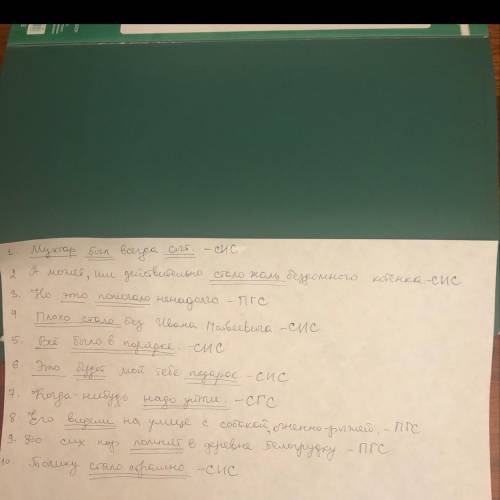 1. Мухтар был всегда сыт. - СИС
2 А может, им действительно стало жаль бездомного котёнка - СИС
3. Но это помогало ненадолго - ПГС
4 Плохо стало без Ивана Матвеевича - СИС
5. Всё было в порядке. - СИС
6 Это будет мой тебе подарок - СИС
7. Когда-нибудь надо уйти. - СГС
8. Его видели на улице с собакой, огненно-рыжей. - ПГС
9. До сих пор помнят в деревне Белогрудку - ПГС
10. Толику стало страшно. - СИС